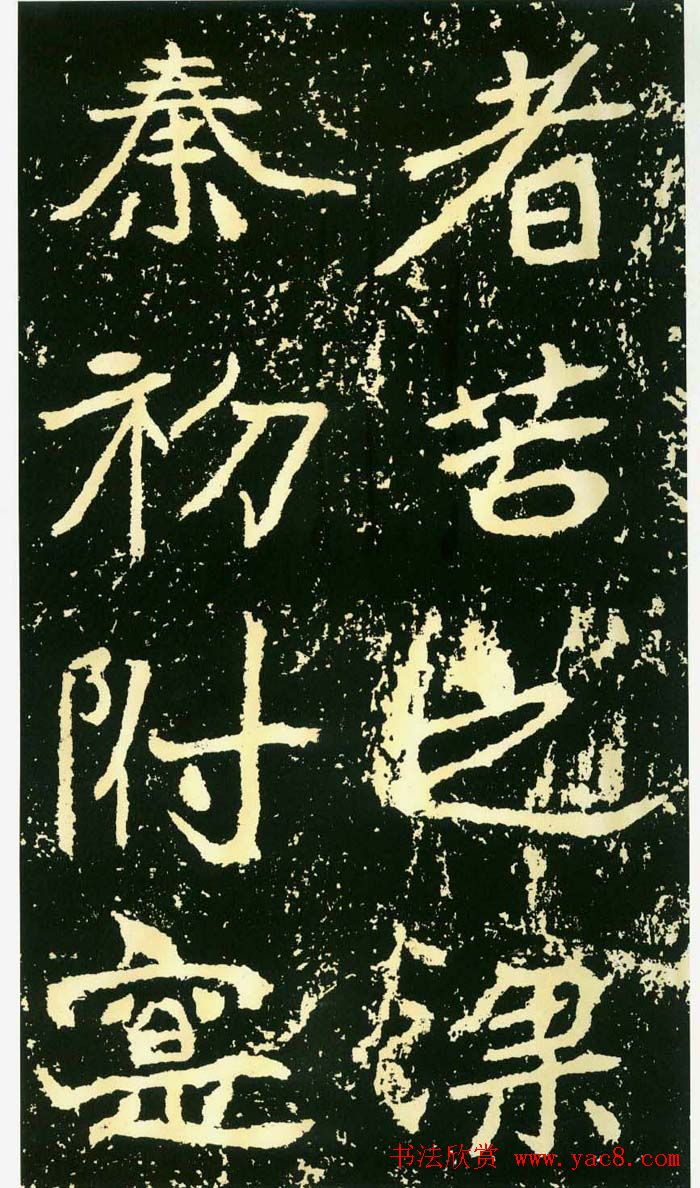 者苦之梁
秦初附寔
书法欣赏 www.yac8.com